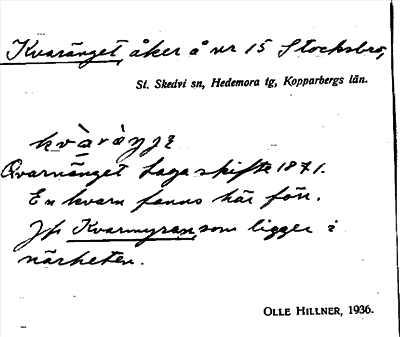 Kvaränget, åker å nr 15 Stocksbro,
St. Skedvi sn, Hedemora tg, Kopparbergs län.
kvàràŋʒε
Qvarnänget Laga skifte 1871.
En kvarn fanns här förr.
Jfr Kvarnmyran, som ligger i
närheten.
OLLE HILLNER, 1936.